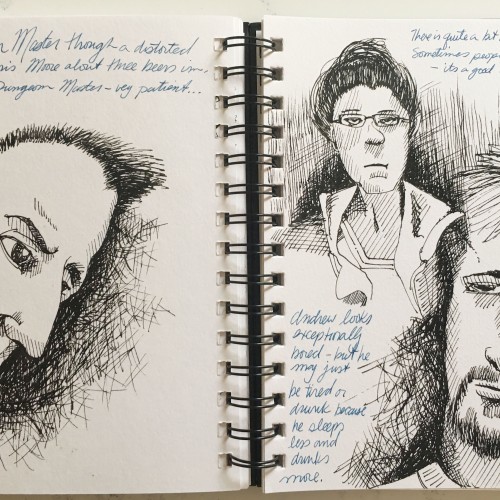 Master though a distorted
Moore about three beers in.
Dungeon Master - very patient...
There is quite a bit
Sometimes peop
- its a good
Andrew looks
exceptionally
bored - but he
may just
be tired or
drunk because
he sleeps
less and
drinks
more.